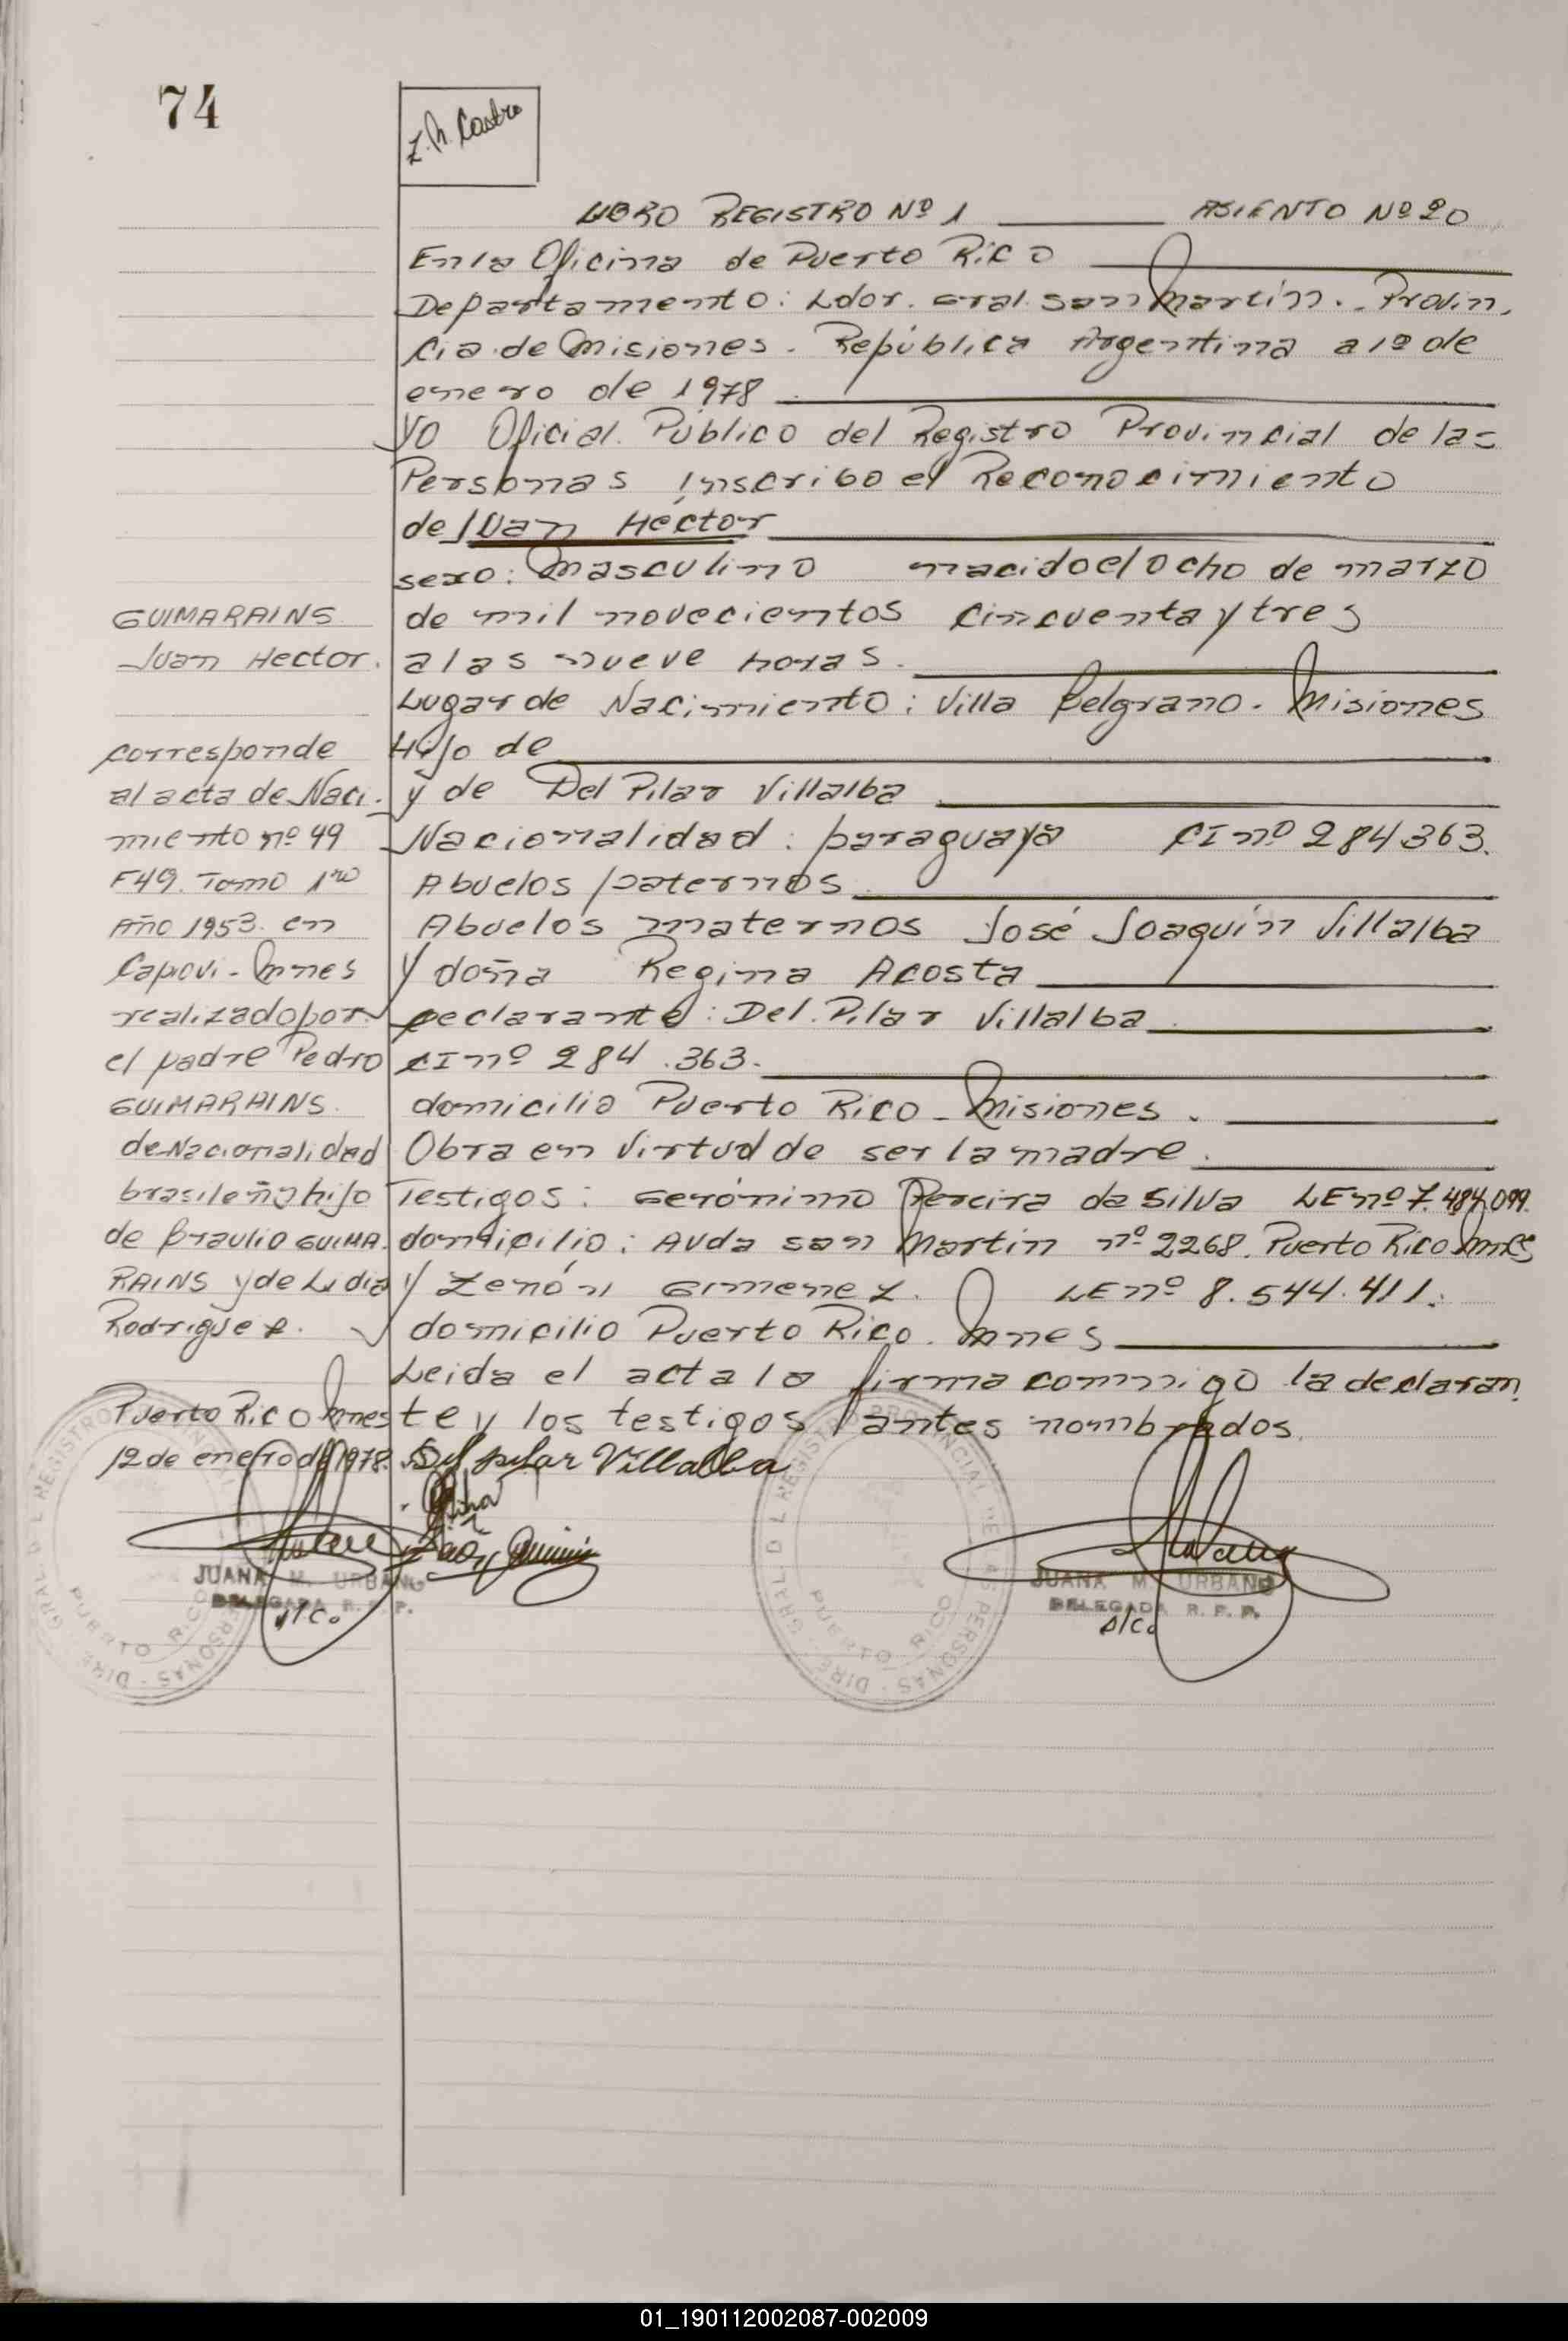 74
Z. R. Castro
LIBRO REGISTRO Nº 1 ASIENTO Nº 20
En la Oficina de Puerto Rico
Departamento: Ldor. Gral. San Martín. - Provin.
cia de Misiones. República Argentina a 1º de
enero de 1978
Yo Oficial Público del Registro Provincial de las
Personas inscribo el Reconocimiento
de Juan Héctor
sexo: Masculino nacido el ocho de marzo
de mil novecientos cincuenta y tres
a las nueve horas.
Lugar de Nacimiento: Villa Belgrano. Misiones
Hijo de
y de Del Pilar Villalba
Nacionalidad: paraguaya CI nº 284.363.
Abuelos paternos
Abuelos maternos José Joaquín Villalba
y doña Regina Acosta
declarante: Del Pilar Villalba
CI nº 284.363.
domicilio Puerto Rico - Misiones.
Obra en virtud de ser la madre.
Testigos: Gerónimo Pereira da Silva LE nº 7.484.099.
domicilio: Avda San Martín nº 2268. Puerto Rico Mnes
y Zenón Gimenez. LE nº 8.544.411.
domicilio Puerto Rico. Mnes
Leida el acta la firma conmigo la declaran
te y los testigos antes nombrados.
Del pilar Villalba
GUIMARAINS
Juan Hector.
corresponde
al acta de Naci-
miento nº 49
F49. Tomo 1ro
Año 1953. en
Capiovi - Mnes
realizado por
el padre Pedro
GUIMARAINS.
de Nacionalidad
brasileña hijo
de Braulio GUIMA.
RAINS y de Lidia
Rodriguez.
Puerto Rico Mnes
12 de enero de 1978.
JUANA M. URBANO
DELEGADA R. P. P.
a/c.
JUANA M. URBANO
DELEGADA R. P. P.
a/c.
DIRE. GRAL D L REGISTRO PROVINCIAL DE LAS PERSONAS
PUERTO RICO
01_190112002087-002009